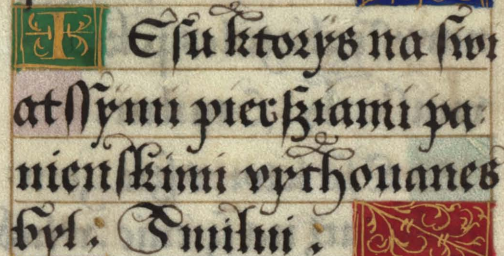 IEsu ktorÿs na swi
atssÿmi pierssziami pa
nienskimi vychouanes
byl. Smilui.